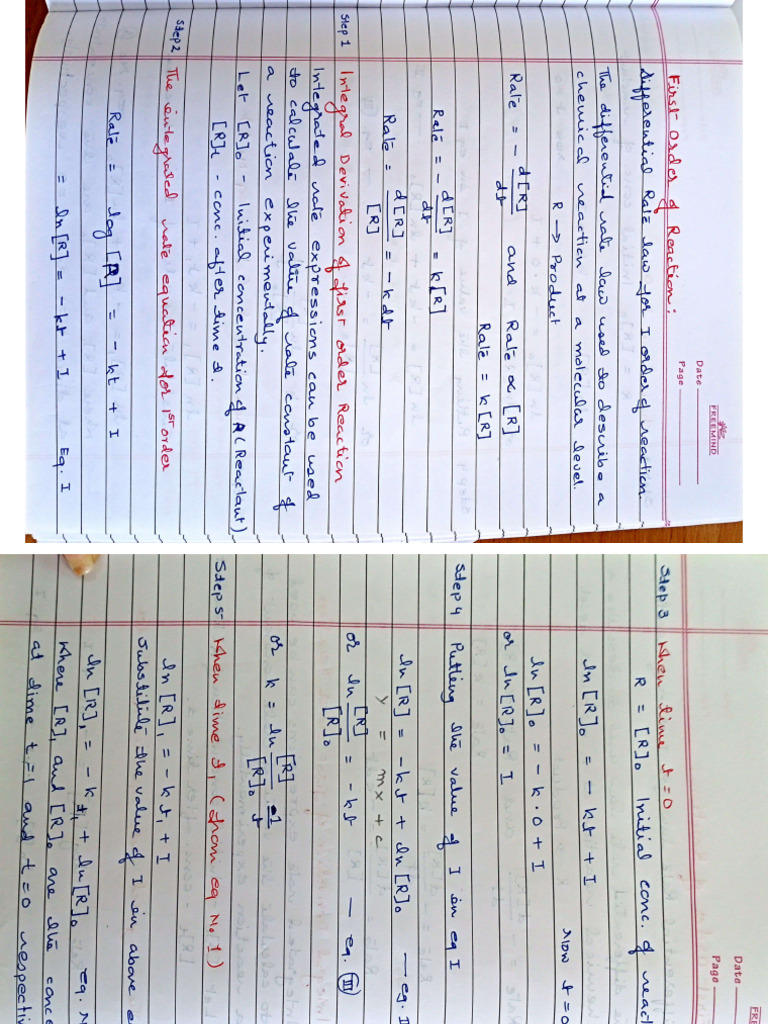 FREEMIND
Date
Page
First Order of Reaction:
Differential Rate law for I order of reaction
The differential rate law used to describe a
chemical reaction at a molecular level.
R → Product
Rate = - d[R]/dt and Rate ∝ [R]
Rate = k[R]
Rate = - d[R]/dt = k[R]
Rate = d[R]/[R] = - k dt
Step 1 Integral Derivation of first order Reaction
Integrated rate expressions can be used
to calculate the value of rate constant of
a reaction experimentally.
Let [R]₀ - Initial concentration of A (Reactant)
[R]t - conc. after time t.
Step 2 The integrated rate equation for 1st order
Rate = log [A] = - kt + I
= ln[R] = - kt + I Eq. I
FRE
Date
Page
Step 3 When time t = 0
R = [R]₀ Initial conc. of react
ln [R]₀ = - kt + I Now t = 0
ln [R]₀ = - k · 0 + I
or ln [R]₀ = I
Step 4 Putting the value of I in eq I
ln [R] = - kt + ln[R]₀ — eq. I
y = mx + c
or ln [R]/[R]₀ = - kt — eq. (III)
or k = ln [R]/[R]₀ -1/t
Step 5 When time t₁ (from eq No 1)
ln [R]₁ = - kt₁ + I
Substitute the value of I in above e
ln [R]₁ = - k t₁ + ln[R]₀ eq. N
Where [R]₁ and [R]₀ are the conce
at time t = 1 and t = 0 respectiv